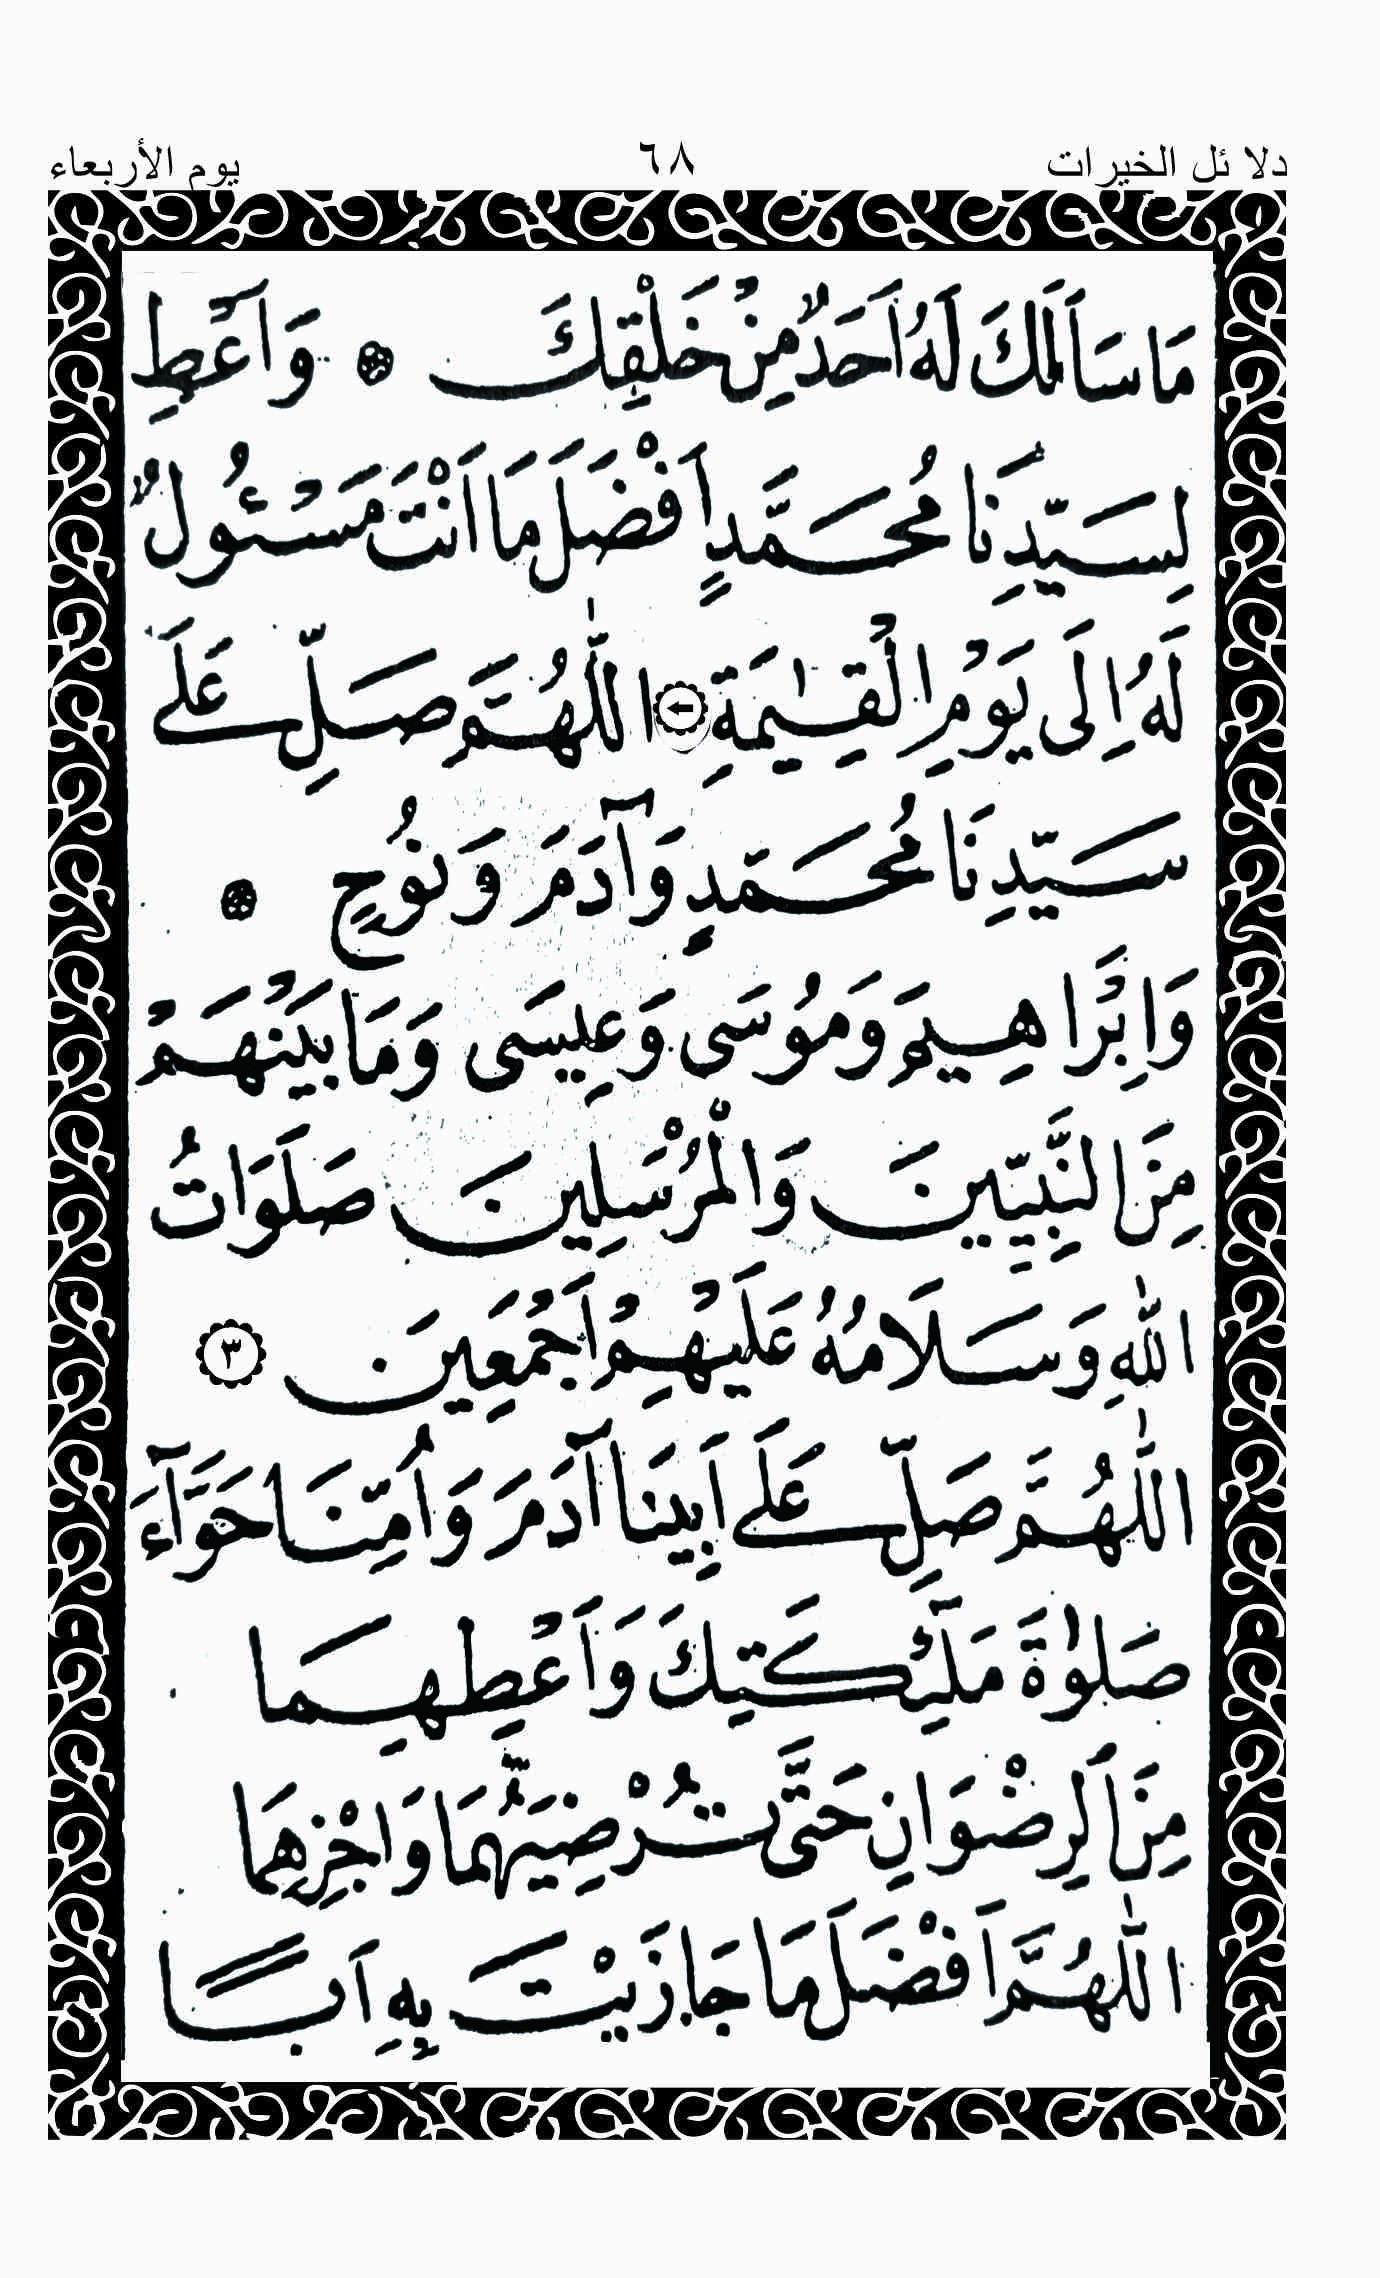 دلا ئل الخيرات ٦٨ يوم الأربعاء
مَا سَاَلَكَ لَهُ اَحَدٌ مِنْ خَلْقِكَ ۞ وَاَعْطِ
لِسَيِّدِنَا مُحَمَّدٍ اَفْضَلَ مَا اَنْتَ مَسْئُولٌ
لَهُ اِلَى يَوْمِ الْقِيٰمَةِ اَللّٰهُمَّ صَلِّ عَلَے
سَيِّدِنَا مُحَمَّدٍ وَآدَمَ وَنُوحٍ ۞
وَاِبْرَاهِيمَ وَمُوسَى وَعِيسَى وَمَا بَيْنَهُمْ
مِنَ النَّبِيِّينَ وَالْمُرْسَلِينَ صَلَوَاتُ
اللّٰهِ وَسَلَامُهُ عَلَيْهِمْ اَجْمَعِينَ ٣
اَللّٰهُمَّ صَلِّ عَلَے اَبِينَا آدَمَ وَاُمِّنَا حَوَّآءَ
صَلٰوةَ مَلٰٓئِكَتِكَ وَاَعْطِهِمَا
مِنَ الرِّضْوَانِ حَتَّى تُرْضِيَهُمَا وَاجْزِهِمَا
اللّٰهُمَّ اَفْضَلَ مَا جَازَيْتَ بِهِ اَبًا